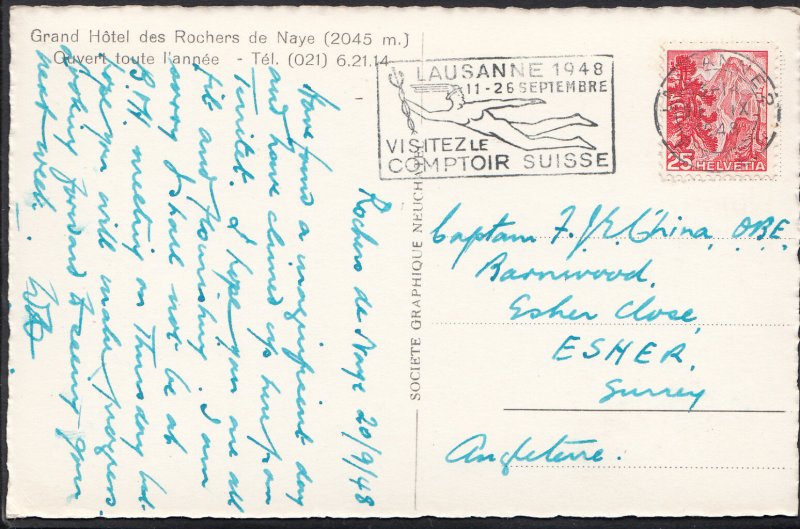 Grand Hôtel des Rochers de Naye (2045 m.)
Ouvert toute l'année - Tél. (021) 6.21.14
LAUSANNE 1948
11-26 SEPTEMBRE
VISITEZ LE
COMPTOIR SUISSE
25 HELVETIA
SOCIETE GRAPHIQUE NEUCH
Rochers de Naye 20/9/48
Have found a magnificent day
and have climbed up here from
I hope you are all
fit and flourishing. I am
sorry I shall not be at
meeting on Thursday but
hope you will make progress.
Looking forward to seeing you
next week.
Captain F. J. E. China, OBE,
Barnwood,
Esher Close,
ESHER,
Surrey
Angleterre.